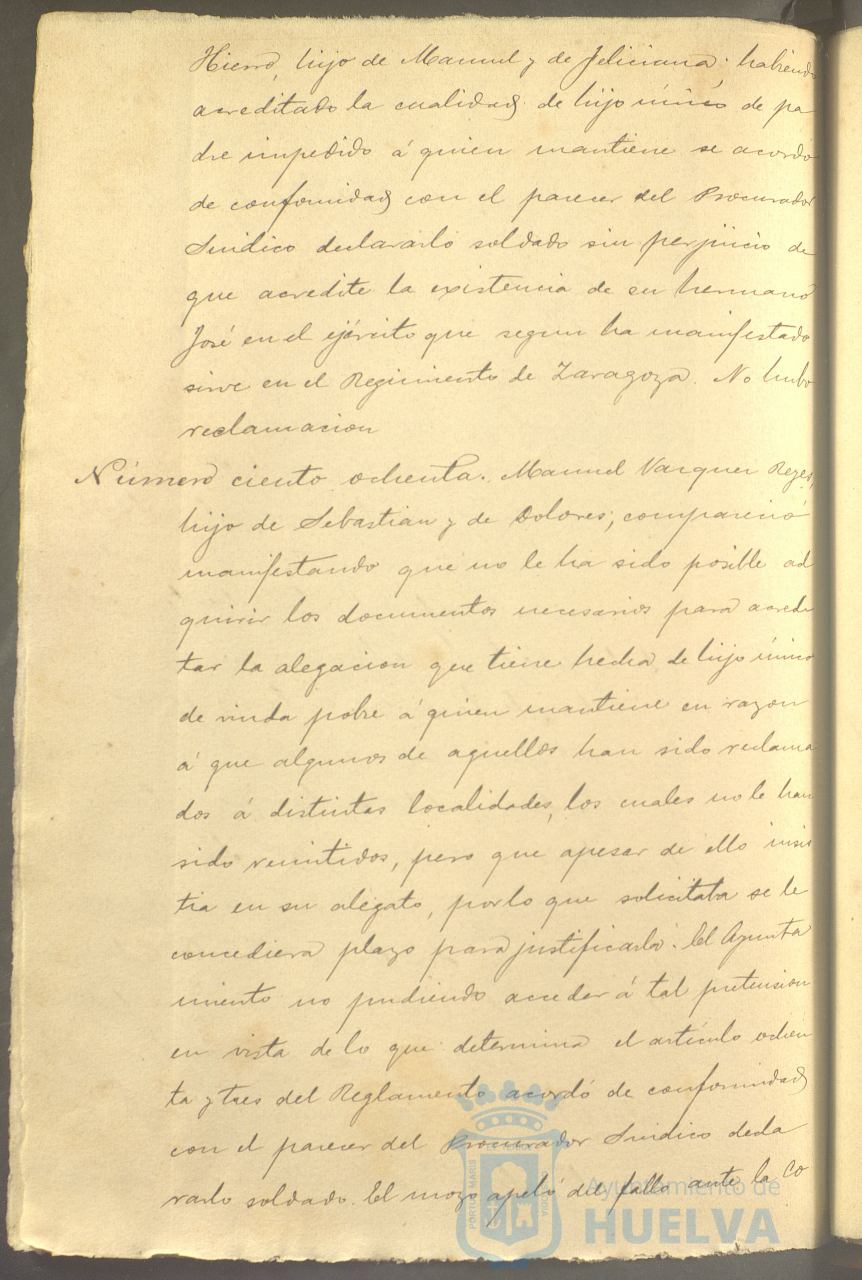 Hierro, hijo de Manuel y de Feliciana; habiendo
acreditado la cualidad de hijo único de pa
dre impedido á quien mantiene se acordo
de conformidad con el parecer del Procurador
Sindico declararlo soldado sin perjuicio de
que acredite la existencia de su hermano
José en el ejército que segun ha manifestado
sirve en el Regimiento de Zaragoza. No hubo
reclamacion
Número ciento ochenta. Manuel Vazquez Reyes,
hijo de Sebastian y de Dolores; compareció
manifestando que no le ha sido posible ad
quirir los documentos necesarios para acredi
tar la alegacion que tiene hecha de hijo único
de viuda pobre á quien mantiene en razon
á que algunos de aquellos han sido reclama
dos á distintas localidades, los cuales no le han
sido remitidos, pero que apesar de ello insis
tia en su alegato, por lo que solicitaba se le
concediera plazo para justificarlo. El Ayunta
miento no pudiendo acceder á tal pretension
en vista de lo que determina el artículo ochen
ta y tres del Reglamento acordó de conformidad
con el parecer del Procurador Sindico decla
rarlo soldado. El mozo apeló del fallo ante la Co
PORTUS MARIS
Ayuntamiento de
HUELVA